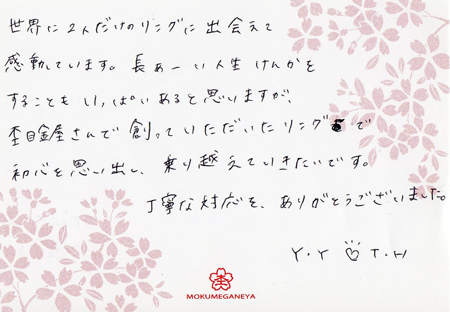 世界に2人だけのリングに出会えて
感動しています。長ぁーい人生けんかを
することもいっぱいあると思いますが、
杢目金屋さんで創っていただいたリングで
初心を思い出し、乗り越えていきたいです。
丁寧な対応を、ありがとうございました。
Y・Y ♡ T・H
杢
MOKUMEGANEYA